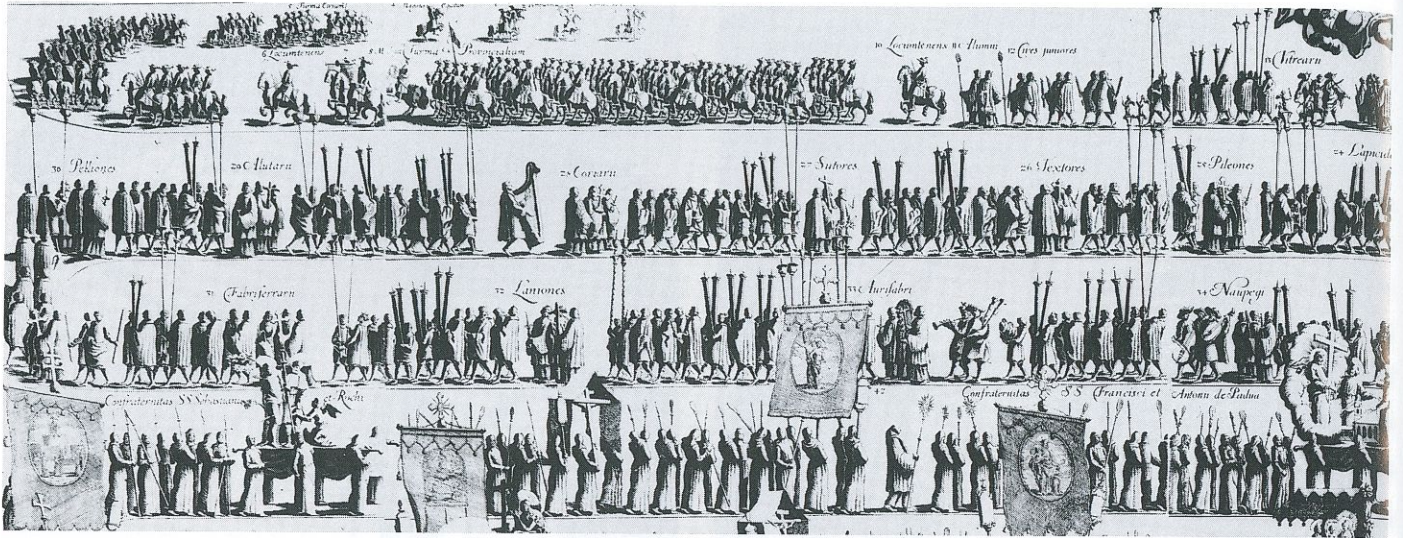 6 Locumtenens
Turma Provincialium
10 Locumtenens 11 Alumni
12 Cives juniores
13 Vitrearii
30 Pelliones
29 Alutarii
28 Coriarii
27 Sutores
26 Textores
25 Pileones
24 Lapicid
31 Fabri ferrarii
32 Laniones
33 Aurifabri
34 Naupegi
Confraternitas SS Sebastiani
et Rochi
42
Confraternitas SS Francisci et Antonii de Padua